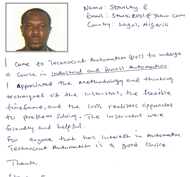 Name: Stanley E.
Country: Lagos, Nigeria
I came to Technocrat Automation (pvt) to undergo
a course in industrial and process Automation.
I appreciated the methodology and teaching
techniques of the instructors, the flexible
timeframe, and the 100% realistic approaches
to problem solving. The instructors were
friendly and helpful.
For anyone that has interest in Automation
Technocrat Automation is a good choice.
Thanks,